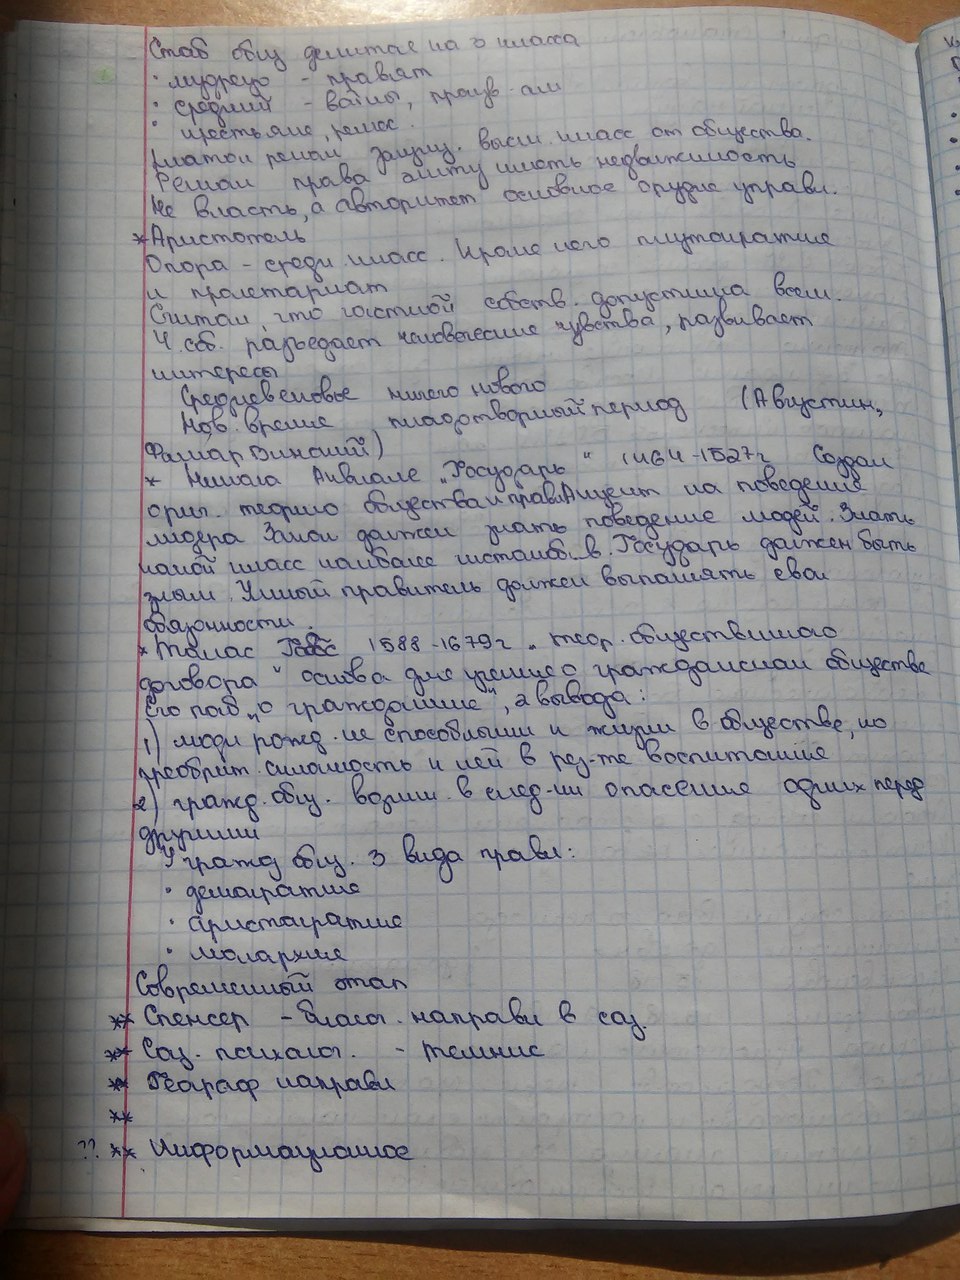 Стаб общ делится на 3 класса
· мудрецо - правят
· средний - войны, произв-ли
· крестьяне, ремес.
Платон решал защищ. высш. класс от общества.
Решал права элиту иметь недвижимость
Не власть, а авторитет основное орудие управл.
* Аристотель
Опора - средн. класс. Кроме него плутократия
и пролетариат
Считал, что частной собств. допустима всем.
Ч. соб. разъедает человеческие чувства, развивает
интересы
Средневековье ничего нового
Нов. время плодотворный период (Августин,
Фамар Винский)
* Никола Акиале „Государь" 1464-1527г Создал
ориг. теорию общества и прав. Акцент на поведение
лидера Закон должен знать поведение людей. Знать
какой класс наиболее в. Государь должен быть
злым. Умный правитель должен выполнять свои
обязонности.
* Томас Гоббс 1588-1679г „теор. общественного
договора" основа для учение о гражданском обществе
Его раб „о гражданине", 2 вывода:
1) люди рожд. не способными к жизни в обществе, но
преобрит. склонность к ней в рез-те воспитание
2) гражд. общ. возник. в след-ии опасение одних перед
другими
У гражд общ. 3 вида правл:
· демократие
· аристократие
· монархие
Современный этап
** Спенсер - биолог. направл в соц.
** Соц. психолог. - теннис
** Географ направл
**
?? ** Информационное